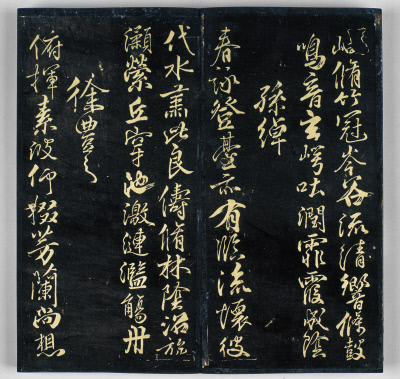 岫脩竹冠岑谷流清響條鼓
鳴音玄崿吐潤霏霞成陰
孫綽
春詠登臺亦有臨流懷彼
伐木肅此良儔脩林陰沼旋
瀨縈丘穿池激連濫觴舟
徐豐之
俯揮素波仰掇芳蘭尚想